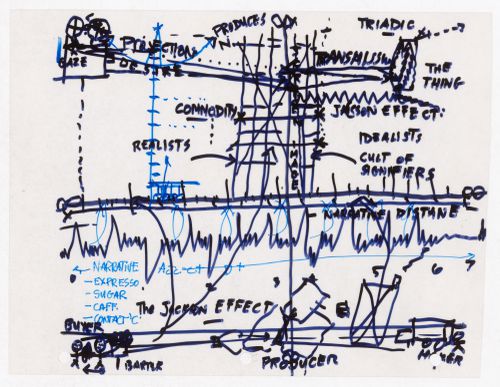 PRODUCES
TRIADIC
PROJECTIONS
GAZE
TRANSMISSION
THE
THING
COMMODITY
JACKSON EFFECT:
REALISTS
IDEALISTS
IMAGE
CULT OF
SIGNIFIERS
NARRATIVE DISTANE
← NARRATIVE
- EXPRESSO
- SUGAR
- CAFF.
- CONTACT 'C'
5
6
7
The JACKSON EFFECT
BUYER
BARTER
PRODUCER